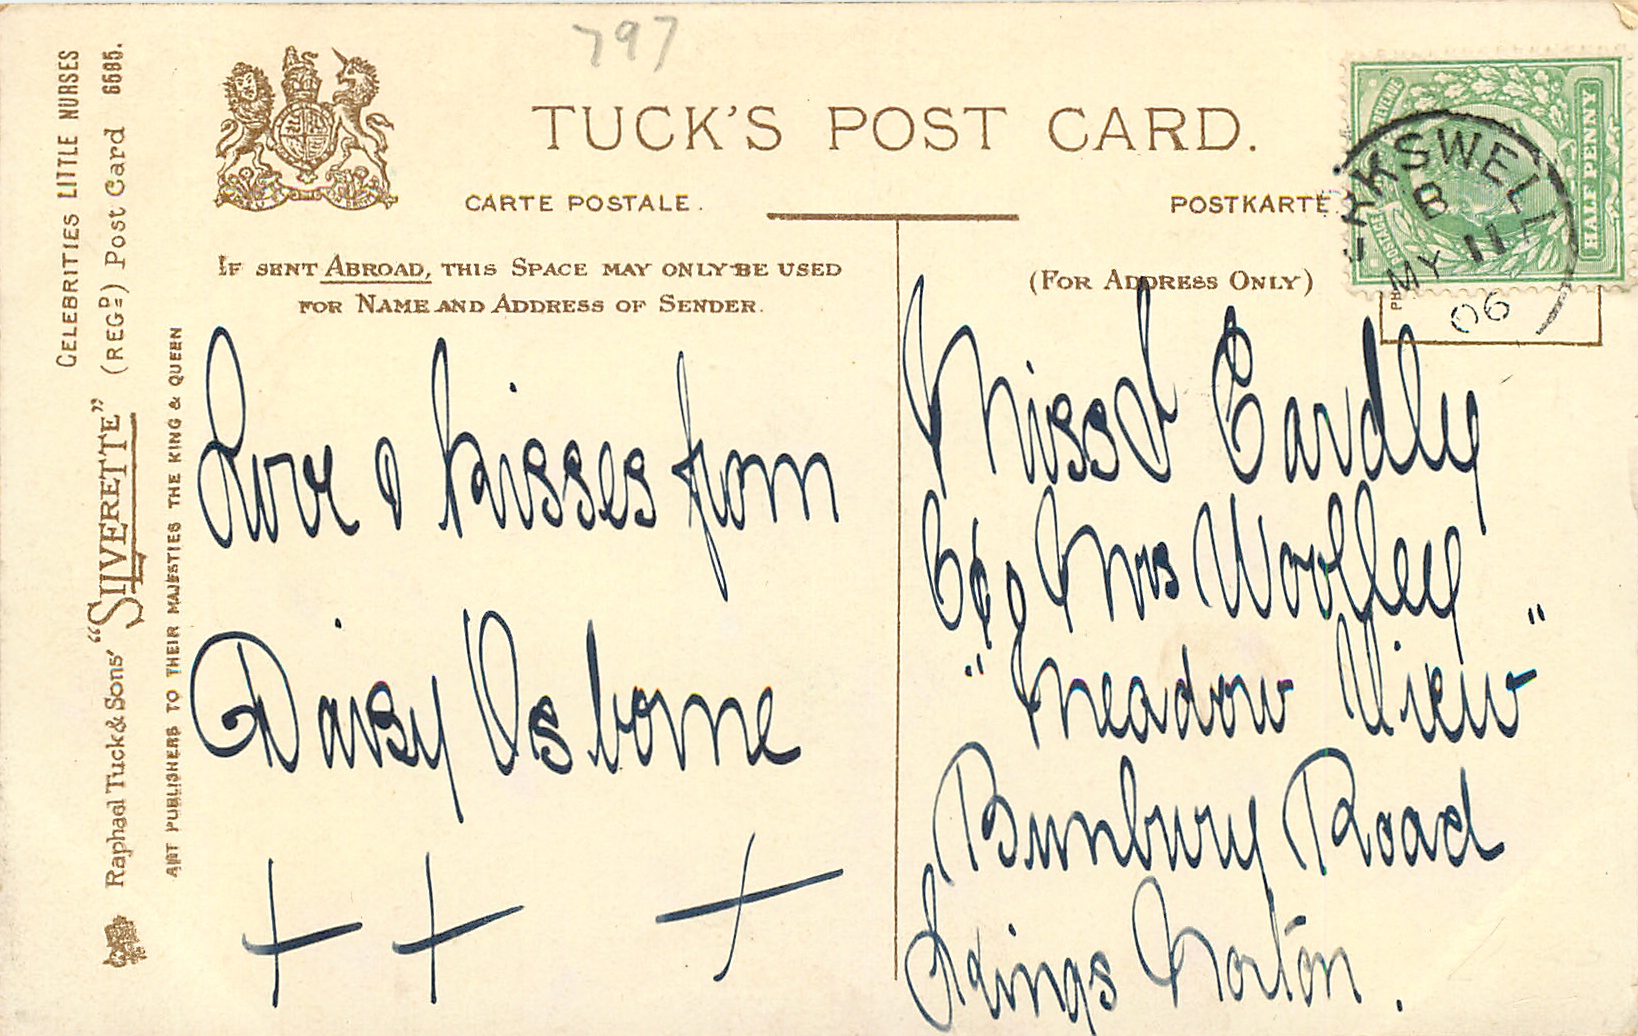 797
TUCK'S POST CARD.
CARTE POSTALE.
POSTKARTE
IF SENT ABROAD, THIS SPACE MAY ONLY BE USED
FOR NAME AND ADDRESS OF SENDER.
(FOR ADDRESS ONLY)
CELEBRITIES LITTLE NURSES
Raphael Tuck & Sons' "SILVERETTE" (REGD) Post Card 6695.
ART PUBLISHERS TO THEIR MAJESTIES THE KING & QUEEN
POSTAGE
REVENUE
HALF PENNY
ERKSWELL
B
MY 11
06
Love & kisses from
Daisy Osborne
+ + +
Miss
C/o Mrs Woolley
"Meadow View"
Bunbury Road
Kings Norton.